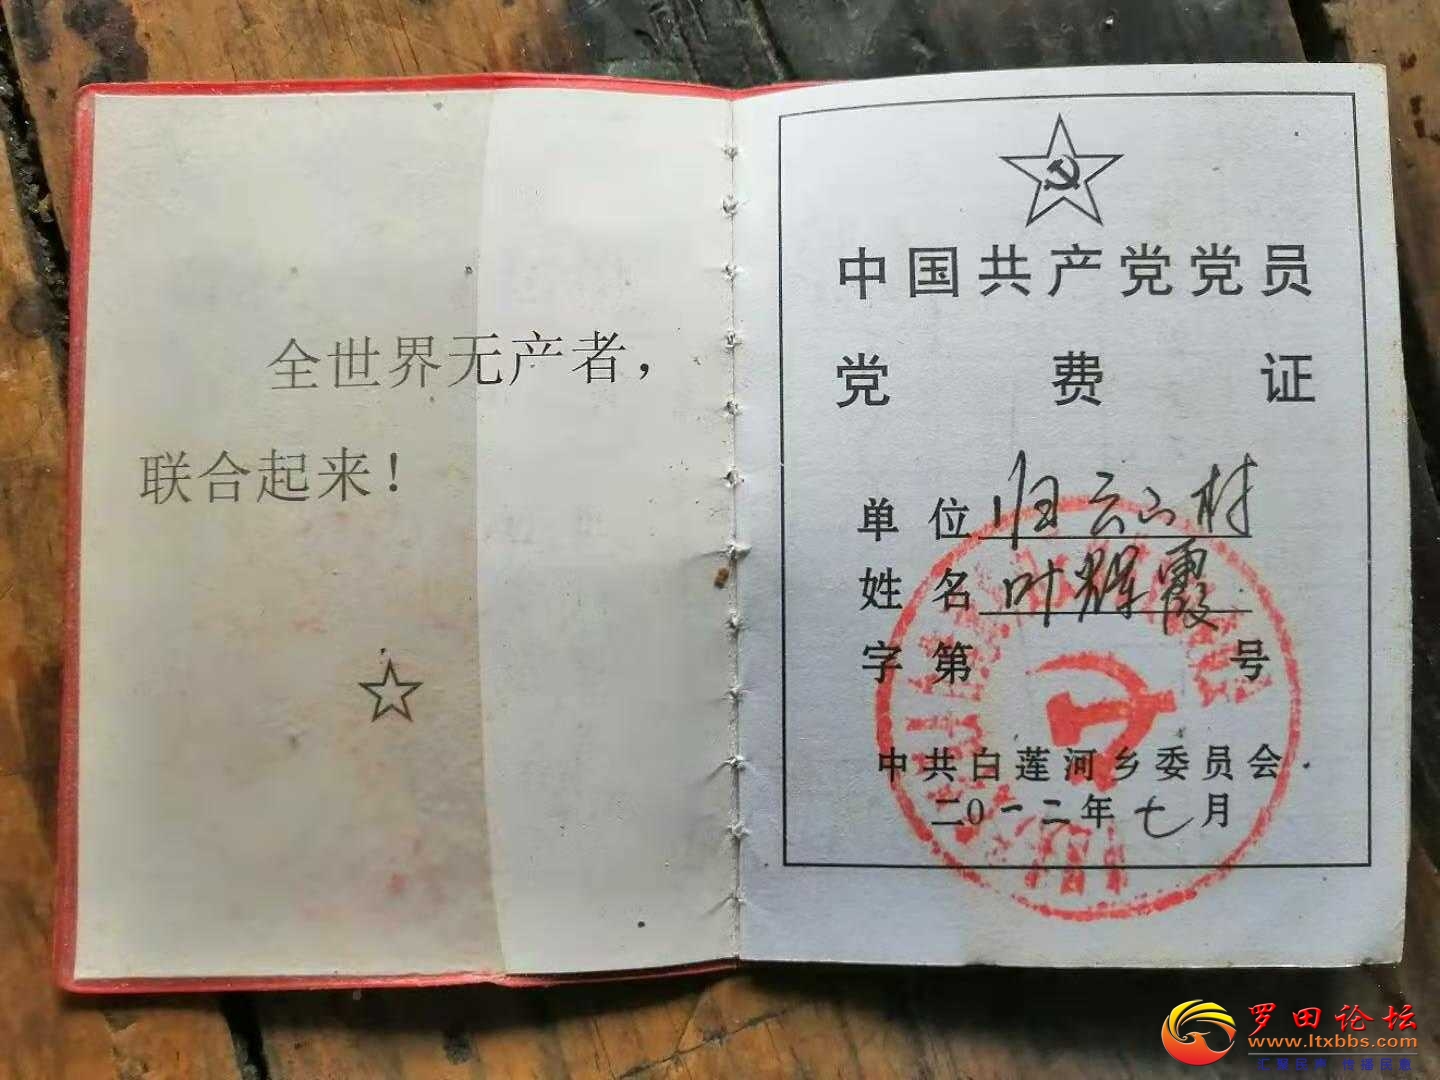 全世界无产者，
联合起来！
中国共产党党员
党费证
单位 归云山村
姓名 叶辉霞
字第 号
中共白莲河乡委员会
二〇一二年七月
罗田论坛
www.ltxbbs.com
汇聚民声 传播民意